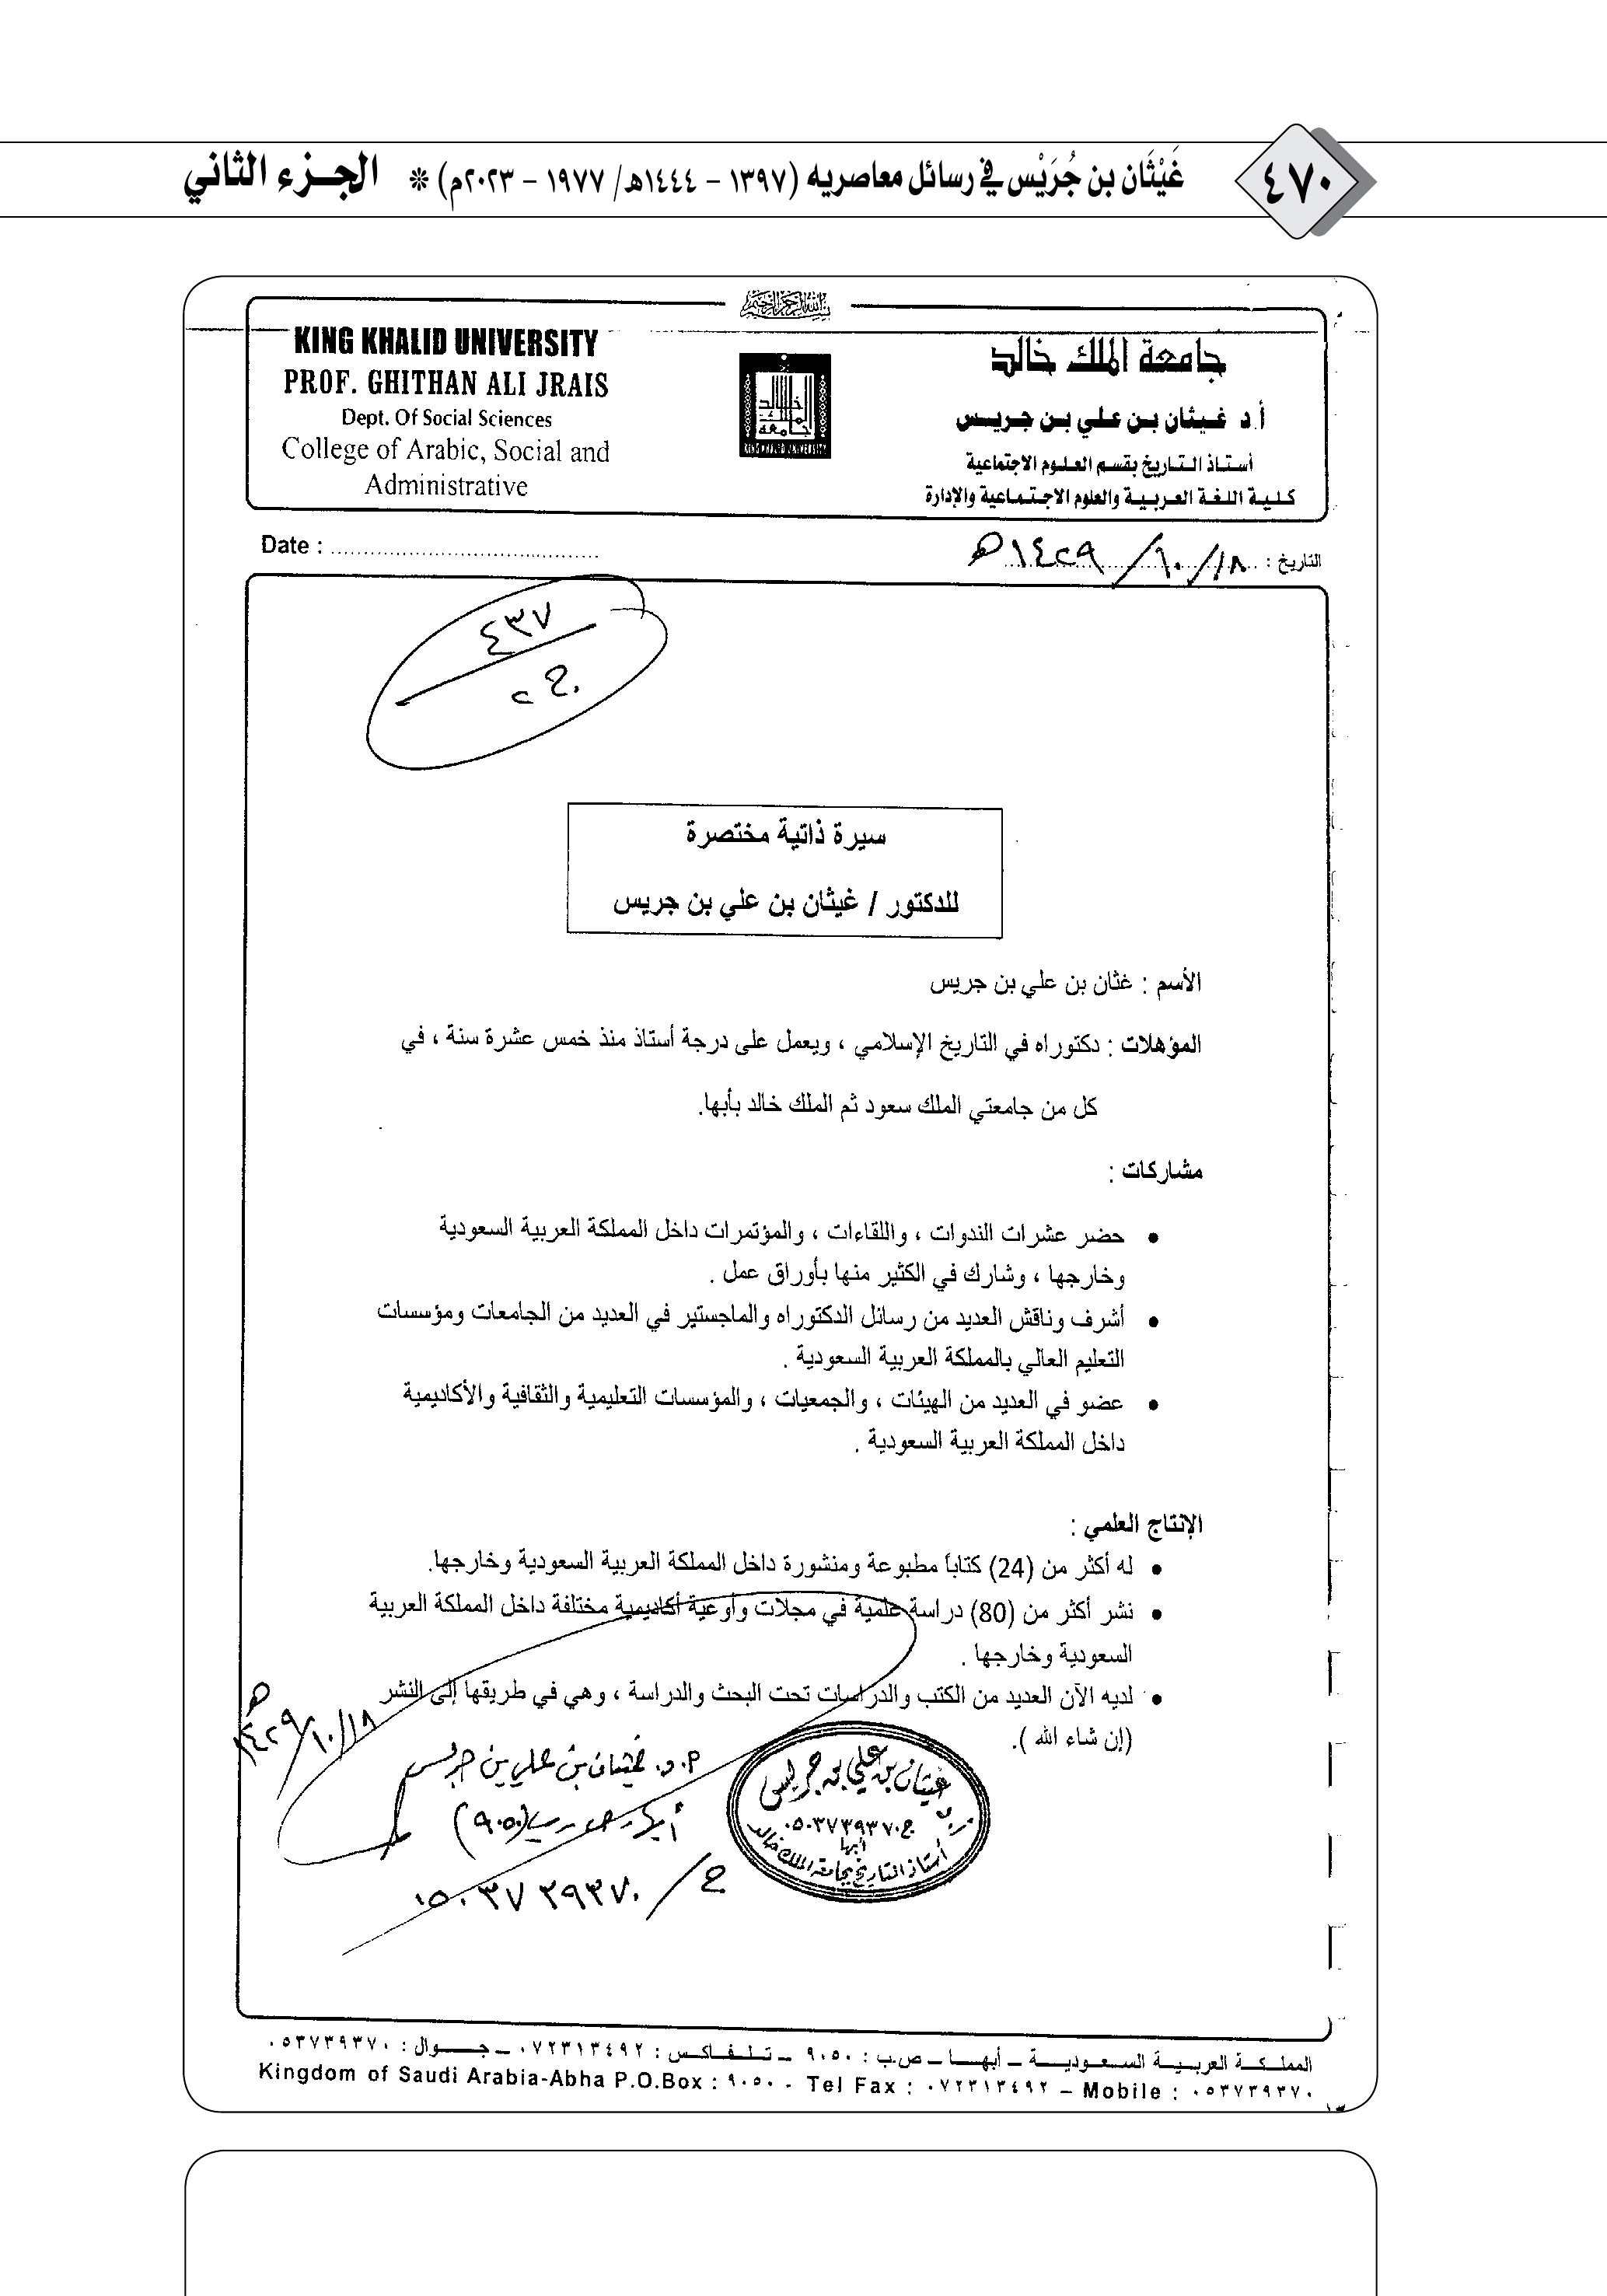 ٤٧٠
غَيْثَان بن جُرَيْس في رسائل معاصريه (١٣٩٧ - ١٤٤٤هـ/ ١٩٧٧ - ٢٠٢٣م) * الجزء الثاني
بسم الله الرحمن الرحيم
جامعة الملك خالد
أ.د غيثان بن علي بن جريس
أستاذ التاريخ بقسم العلوم الاجتماعية
كلية اللغة العربية والعلوم الاجتماعية والإدارة
جامعة الملك خالد
KING KHALID UNIVERSITY
KING KHALID UNIVERSITY
PROF. GHITHAN ALI JRAIS
Dept. Of Social Sciences
College of Arabic, Social and
Administrative
التاريخ : ١٤٢٩/١٠/١٨هـ
Date :
٤٣٧
سيرة ذاتية مختصرة
للدكتور / غيثان بن علي بن جريس
الأسم : غثان بن علي بن جريس
المؤهلات : دكتوراه في التاريخ الإسلامي ، ويعمل على درجة أستاذ منذ خمس عشرة سنة ، في
كل من جامعتي الملك سعود ثم الملك خالد بأبها.
مشاركات :
• حضر عشرات الندوات ، واللقاءات ، والمؤتمرات داخل المملكة العربية السعودية
وخارجها ، وشارك في الكثير منها بأوراق عمل .
• أشرف وناقش العديد من رسائل الدكتوراه والماجستير في العديد من الجامعات ومؤسسات
التعليم العالي بالمملكة العربية السعودية .
• عضو في العديد من الهيئات ، والجمعيات ، والمؤسسات التعليمية والثقافية والأكاديمية
داخل المملكة العربية السعودية .
الإنتاج العلمي :
• له أكثر من (24) كتاباً مطبوعة ومنشورة داخل المملكة العربية السعودية وخارجها.
• نشر أكثر من (80) دراسة علمية في مجلات وأوعية أكاديمية مختلفة داخل المملكة العربية
السعودية وخارجها .
• لديه الآن العديد من الكتب والدراسات تحت البحث والدراسة ، وهي في طريقها إلى النشر
(إن شاء الله ).
١٤٢٩/١٠/١٨هـ
أ.د. غيثان بن علي بن جريس
أبها ص.ب (٩٠٥٠)
ج/ ٠٥٠٣٧٣٩٣٧٠
غيثان بن علي بن جريس
ج ٠٥٠٣٧٣٩٣٧٠
أبها
أستاذ التاريخ بجامعة الملك خالد
المملكة العربية السعودية - أبها - ص.ب : ٩٠٥٠ - تلفاكس : ٠٧٢٣١٣٤٩٢ - جوال : ٠٥٣٧٣٩٣٧٠
Kingdom of Saudi Arabia-Abha P.O.Box : ٩٠٥٠ - Tel Fax : ٠٧٢٣١٣٤٩٢ – Mobile : ٠٥٣٧٣٩٣٧٠